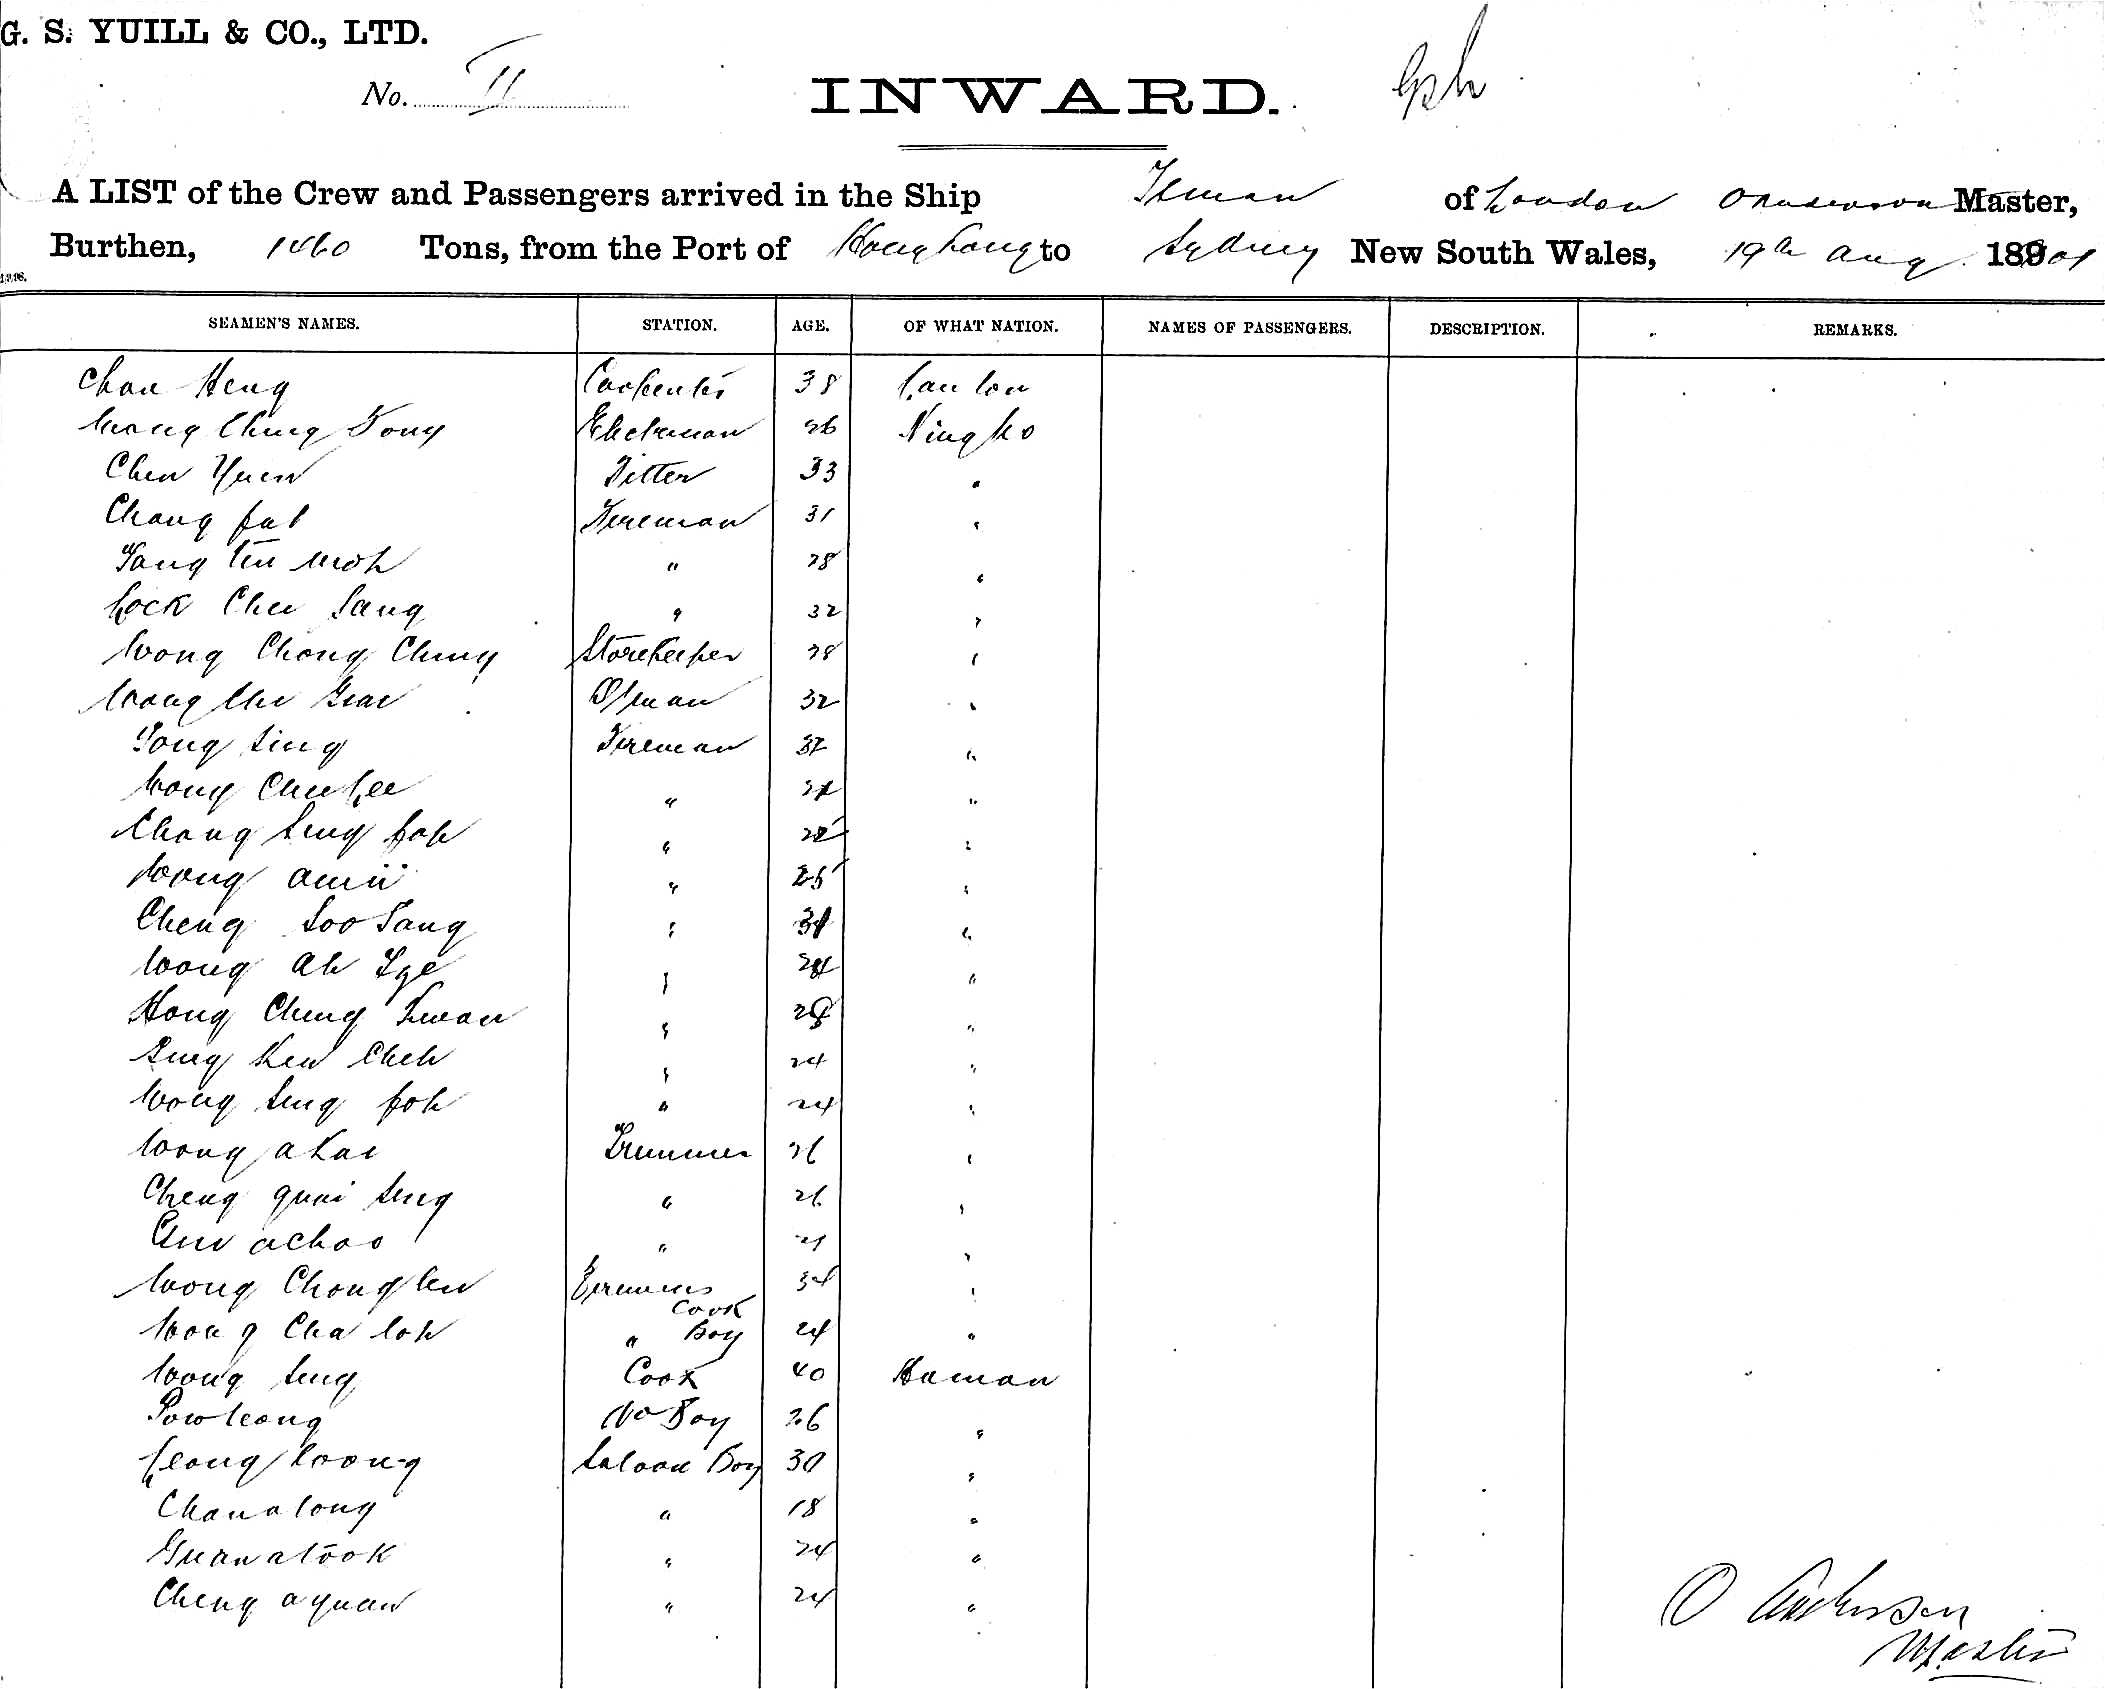 G. S. YUILL & CO., LTD.
No. II
INWARD.
A LIST of the Crew and Passengers arrived in the Ship of London O Anderson Master,
Burthen, 1460 Tons, from the Port of Hong Kong to Sydney New South Wales, 19th Aug. 1901
SEAMEN'S NAMES. STATION. AGE. OF WHAT NATION. NAMES OF PASSENGERS. DESCRIPTION. REMARKS.
Chan Heng Carpenter 38 Canton
Wong Ching 26 Ningpo
Chen Yuen Fitter 33 "
Chang fat Fireman 31 "
Tang " 28 "
Sang " 32 "
Wong Chong Ching Storekeeper 28 "
Wong 32 "
Tong Sing Fireman 32 "
Wong " "
Chang Sing foh " "
Wong " 25 "
Cheng Soo Sang " "
Wong Ah " "
Hong Cheng " "
Cheh " 24 "
Wong Sing foh " 24 "
Wong a Kai Trimmer 26 "
Cheng quai Sing " 26 "
achoo " 21 "
Wong Chong Firemens Cook 34 "
Wong Cha loh " Boy 24 "
Wong Sing Cook 40 Hainan
Powleong Boy 26 "
Leong Koong Saloon Boy 30 "
Chanalong " 18 "
Guanatook " 24 "
Cheng aquan " 24 "
O Anderson
Master